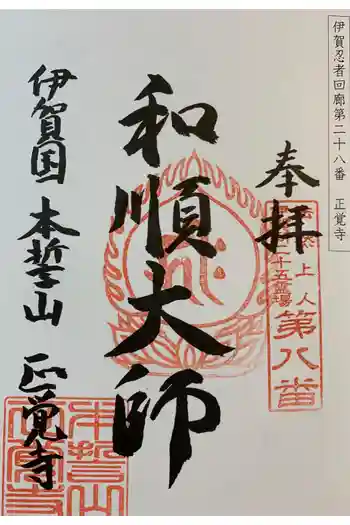 伊賀忍者回廊第二十八番　正覚寺
奉拝
上人
二十五霊場
第八番
和順大師
伊賀国 本誓山 正覚寺
本誓山
正覚寺